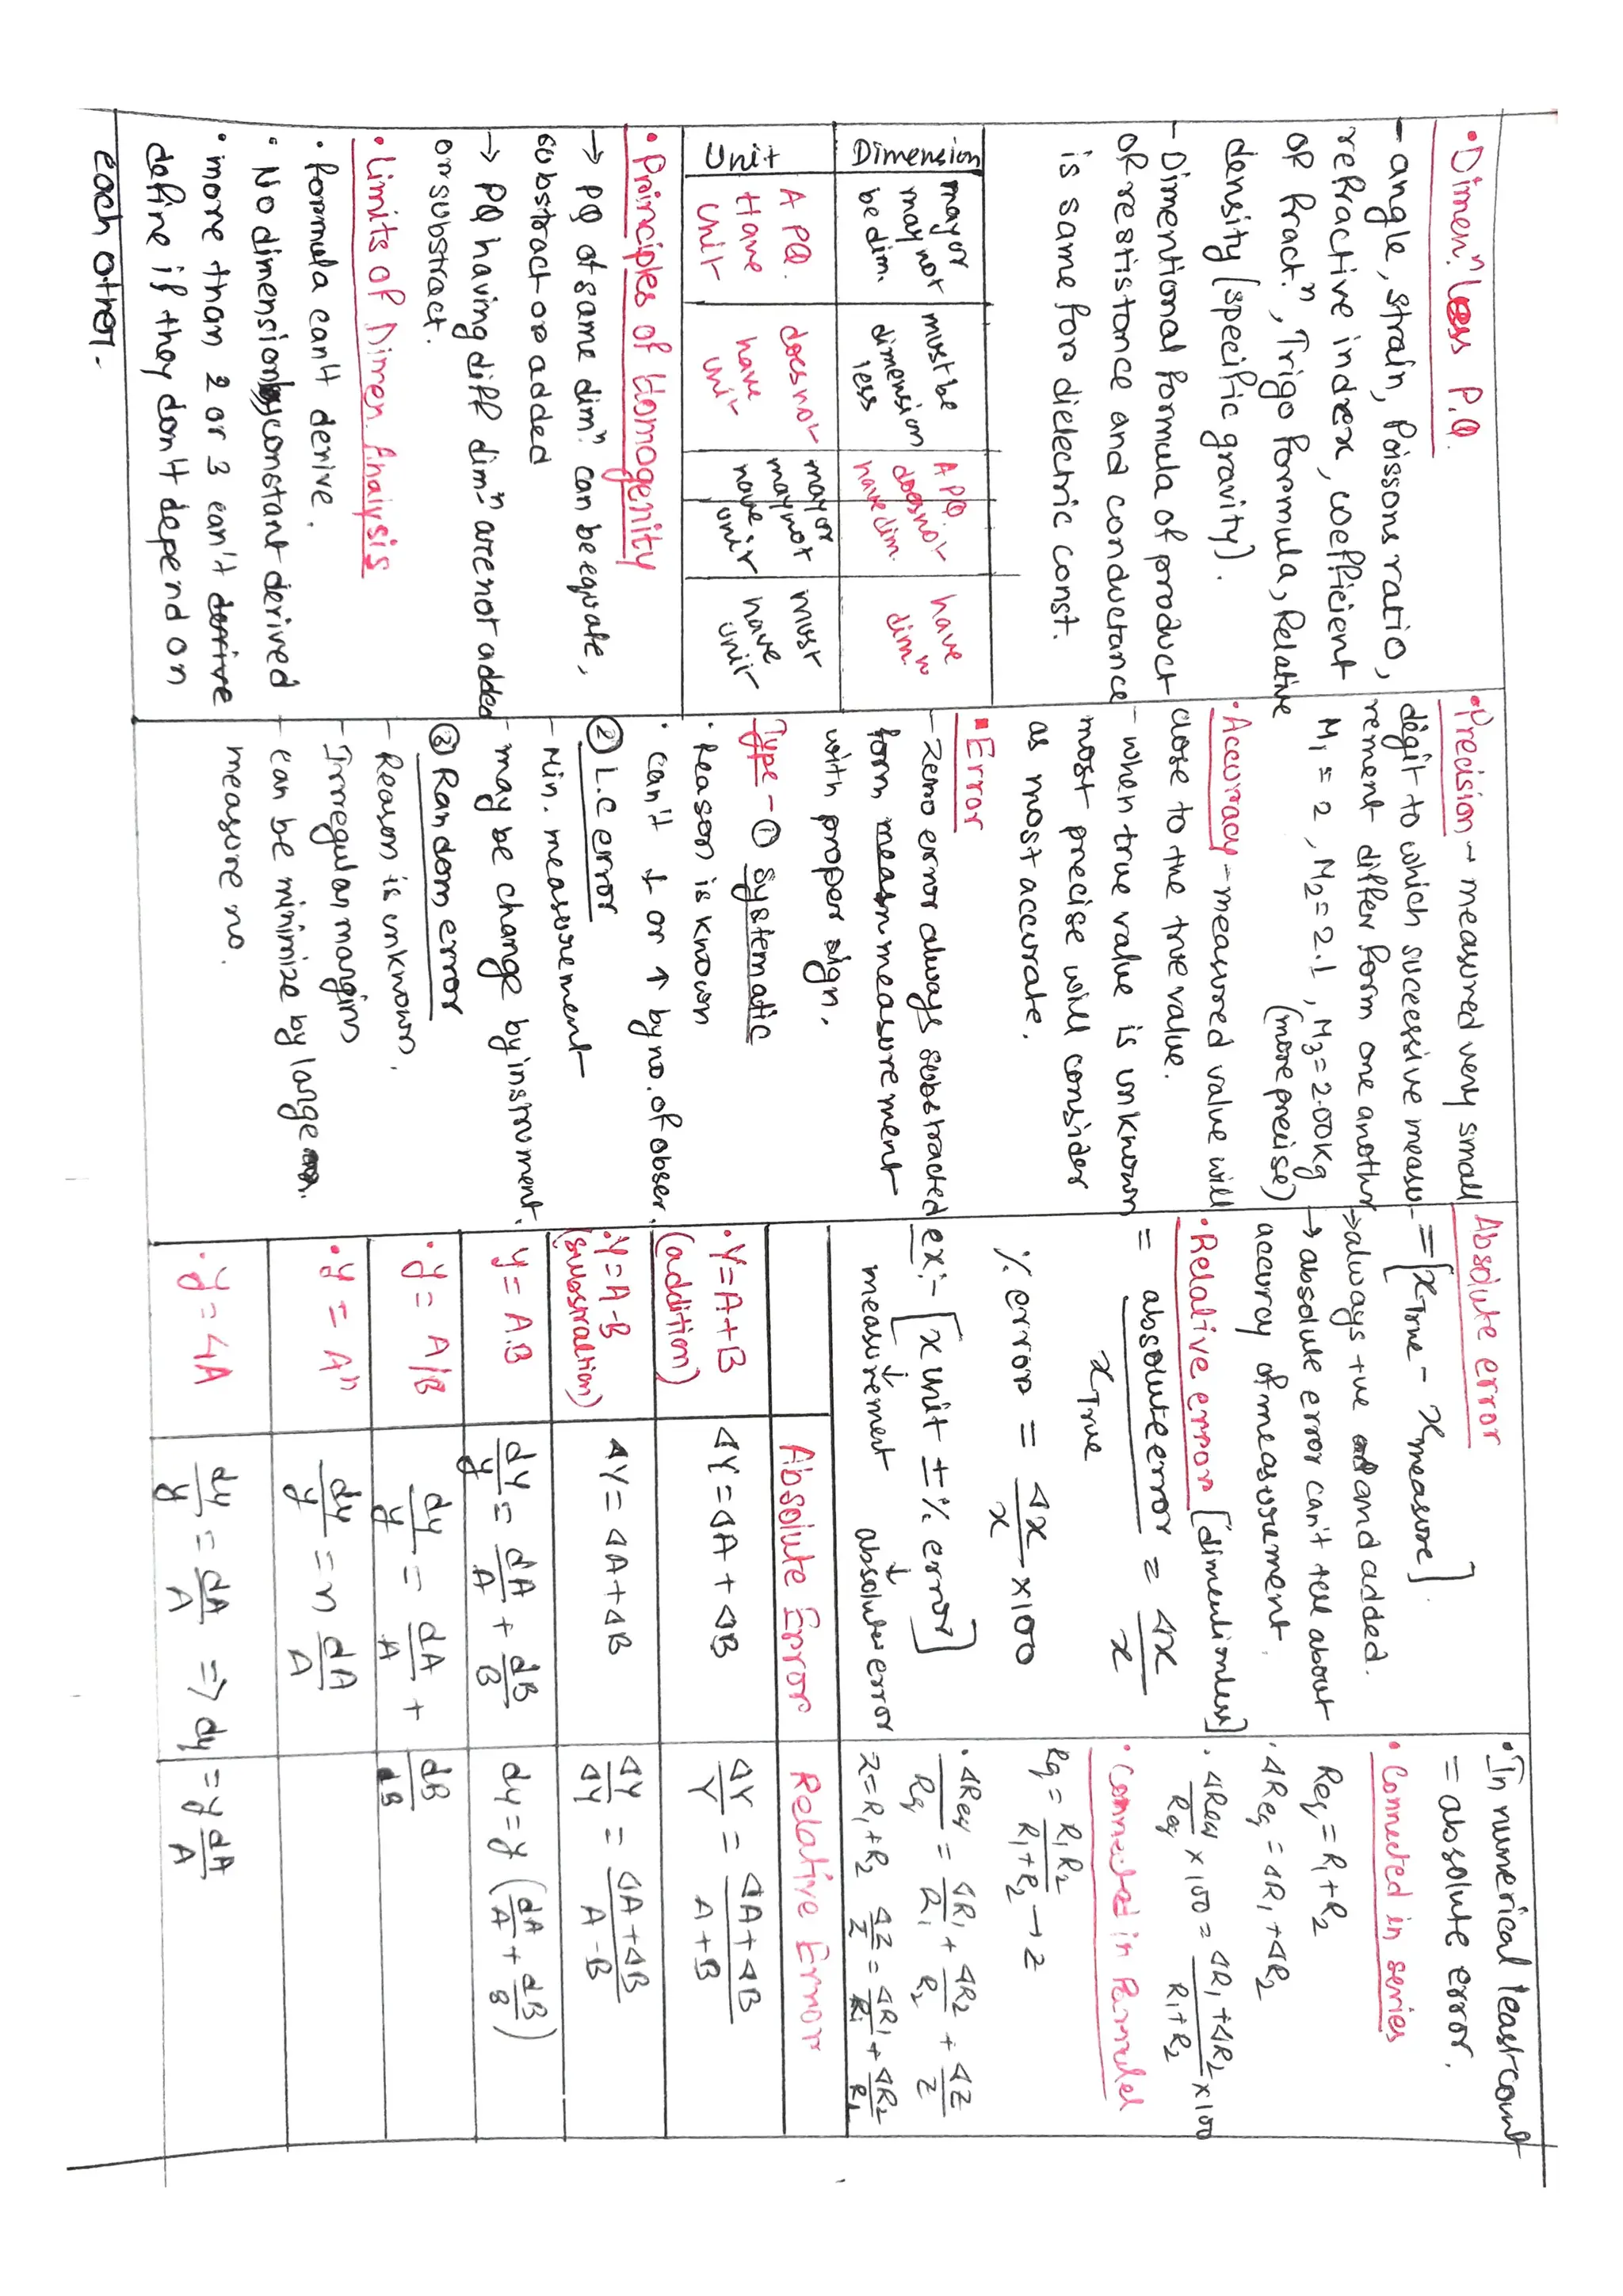 • Dimenⁿ less P.Q.
- angle, strain, Poissons ratio,
refractive index, coefficient
of fractⁿ, Trigo formmula, Relative
density (specific gravity).
- Dimentional formula of product
of resistance and conductance
is same for dielectric const.
Dimension | may or may not be dim. | must be dimension less | A PQ. does not have dim. | have dimⁿ
Unit | A PQ. Have Unit | does not have unit | may or may not have unit | must have unit
• Principles of Homogenity
→ PQ of same dimⁿ can be equate,
substract or added
→ PQ having diff dimⁿ are not added
or substract.
• Limits of Dimen. Analysis
• formula can't derive.
• No dimension by constant derived
• more than 2 or 3 can't derive
define if they don't depend on
each other.
• Precision → measured very small
digit to which sucessive measu-
rement differ form one another
M₁ = 2, M₂ = 2.1, M₃ = 2.00kg
(more precise)
• Accuracy - measured value will
close to the true value.
- when true value is unknown
most precise will consider
as most accurate.
▪ Error
- Zero error always substracted
form measurement
with proper sign.
Type - ① Systematic
• Reason is known
• can't ↓ or ↑ by no. of obser.
② L.C error
- Min. measurement
- may be change by instrument.
③ Random error
- Reason is unknown.
- Irregular margins
- can be minimize by large
measure no.
Absolute error
= [x_True - x_measure].
→ always +ve and added.
→ absolute error can't tell about
accuray of measurement.
• Relative error [dimentionless]
= absolute error / x_True = Δx / x
% error = Δx / x × 100
ex:- [x unit ± % error]
↓ ↓
measurement absolute error
Absolute Error | Relative Error
• Y = A+B (addition) | ΔY = ΔA + ΔB | ΔY/Y = ΔA+ΔB / A+B
• Y = A-B (substraction) | ΔY = ΔA + ΔB | ΔY/ΔY = ΔA+ΔB / A-B
• y = A.B | dy/y = dA/A + dB/B | dy = y (dA/A + dB/B)
• y = A/B | dy/y = dA/A + dB/dB
• y = Aⁿ | dy/y = n dA/A
• y = 4A | dy/y = dA/A ⇒ dy = y dA/A
• In numerical least count
= absolute error.
• Connected in series
Req = R₁+R₂
• ΔReq = ΔR₁+ΔR₂
• ΔReq/Req × 100 = ΔR₁+ΔR₂ / R₁+R₂ × 100
• Connected in Parralel
Rq = R₁R₂ / R₁+R₂ → Z
• ΔReq/Rq = ΔR₁/R₁ + ΔR₂/R₂ + ΔZ/Z
Z = R₁+R₂ ΔZ/Z = ΔR₁/R₁ + ΔR₂/R₂